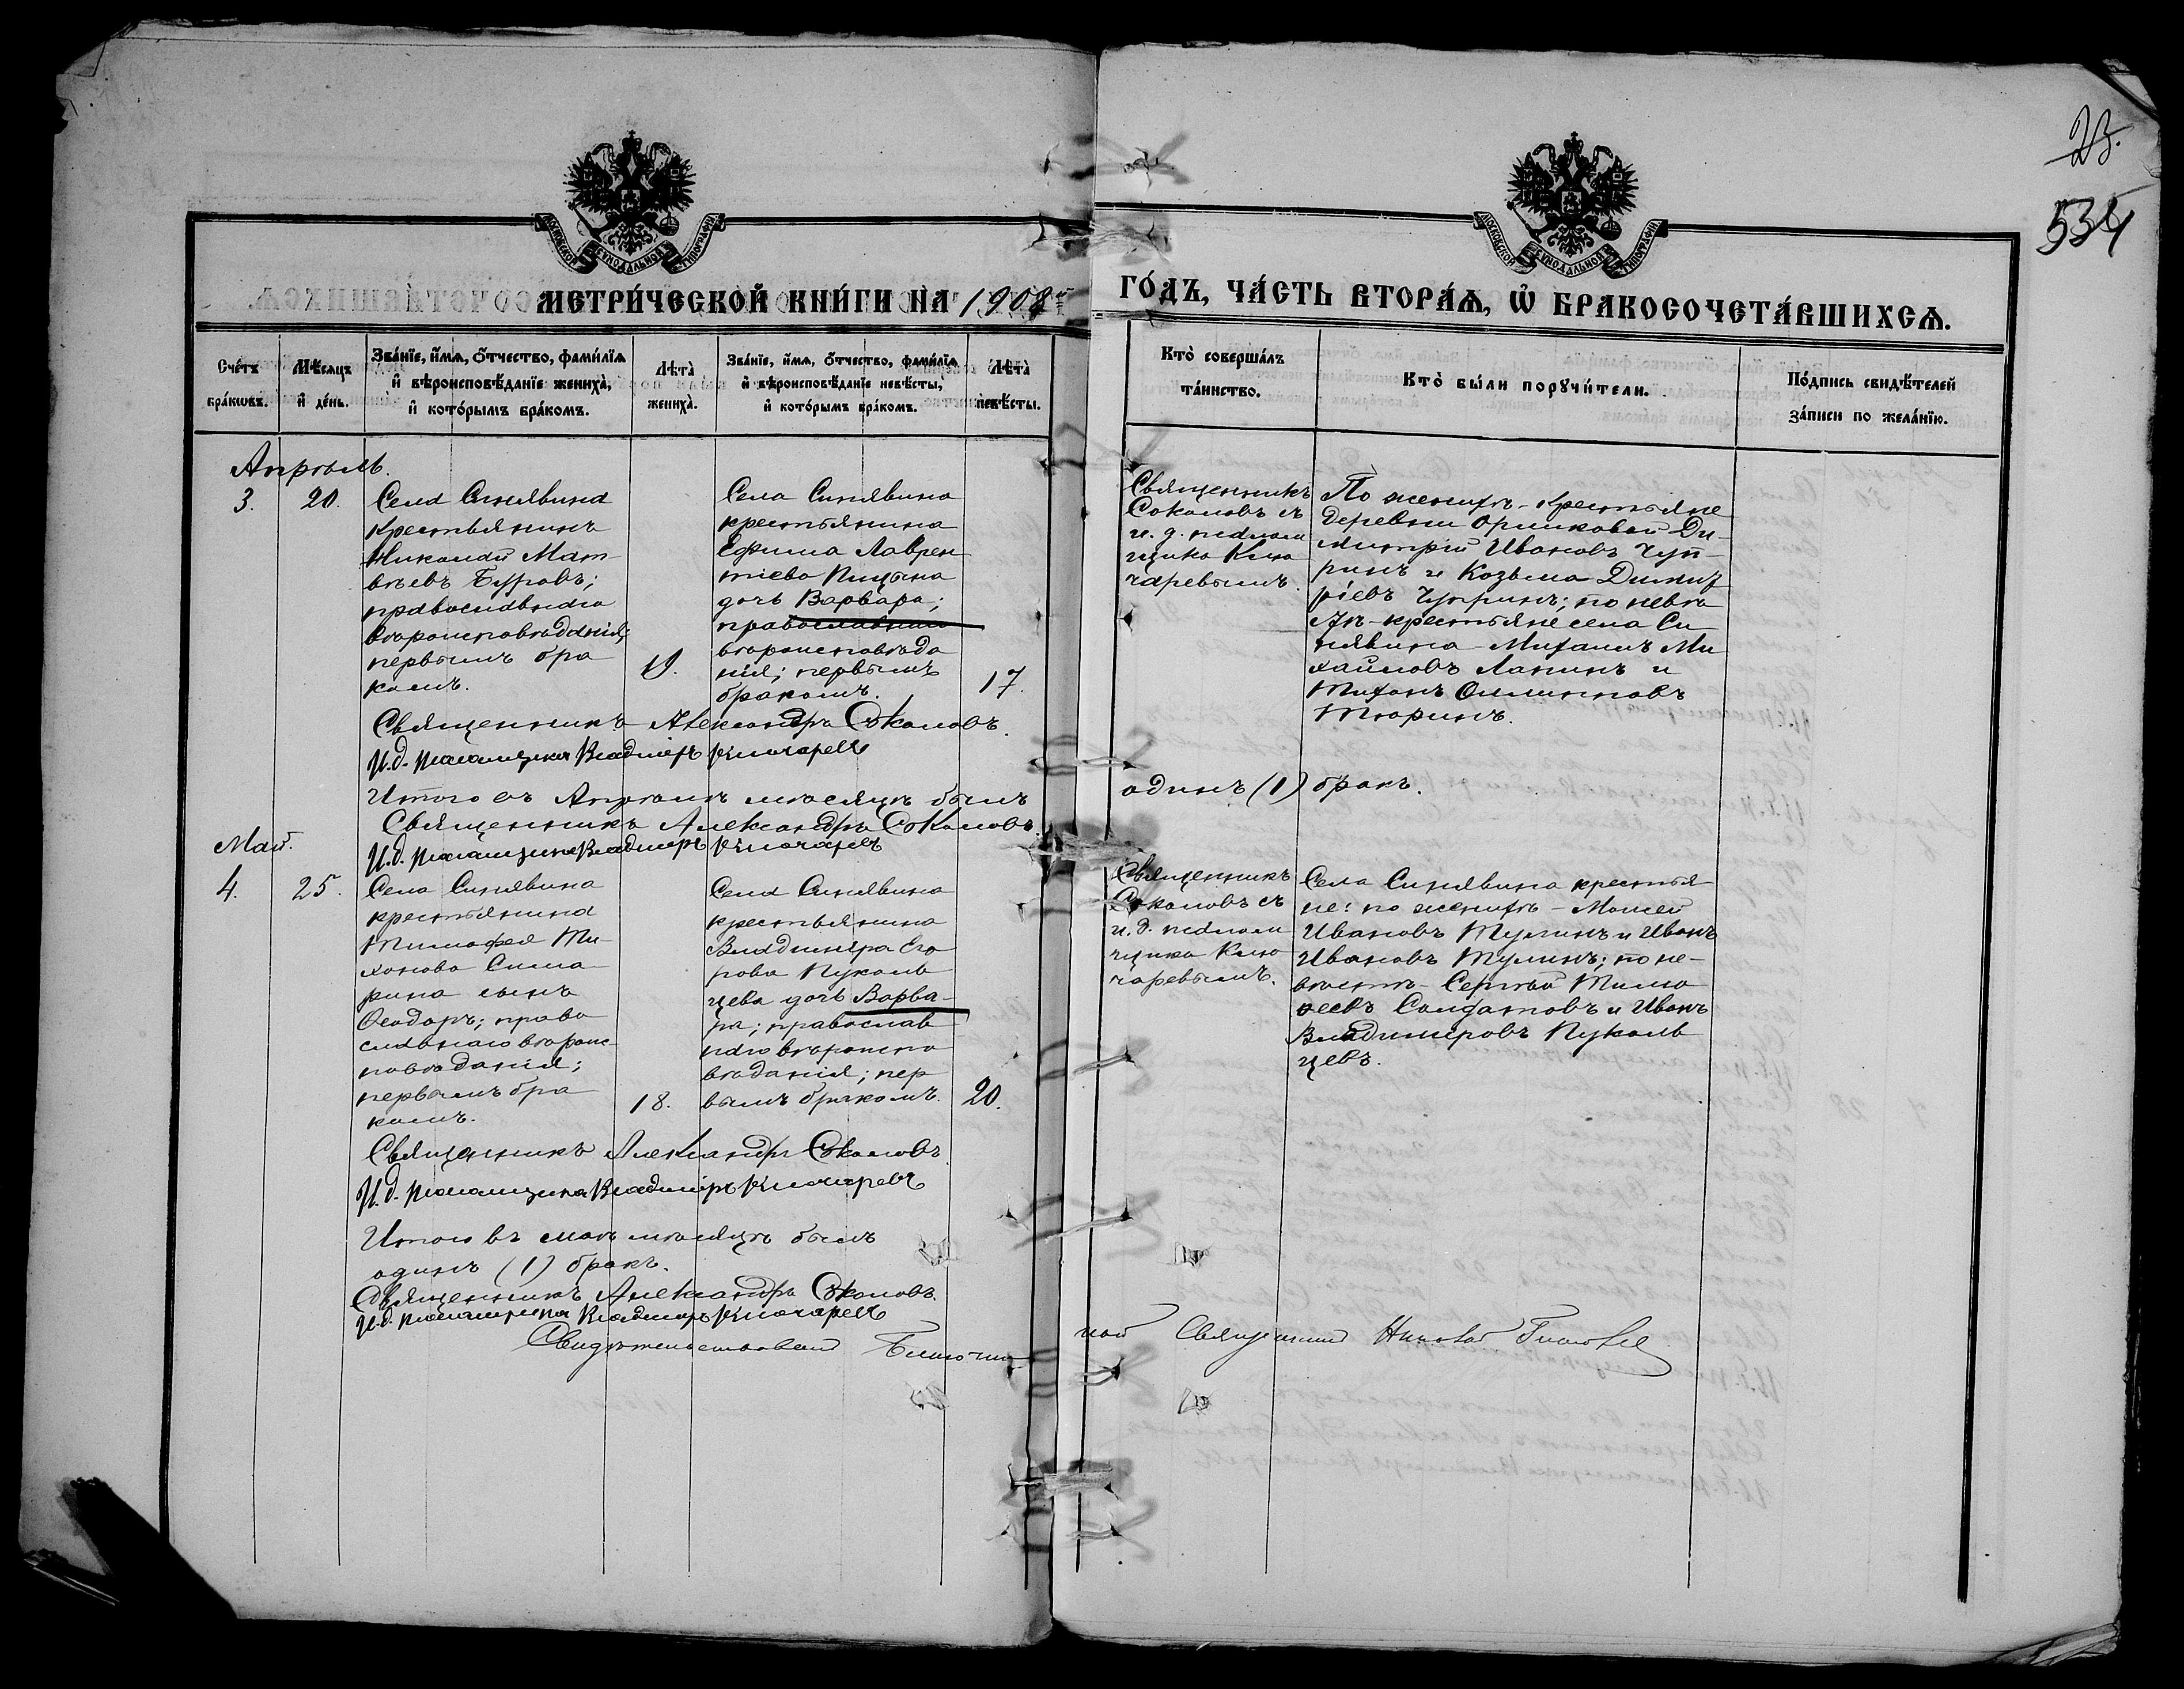 23.
534
МОСКОВСКОЙ СѴНОДАЛЬНОЙ ТИПОГРАФІИ
МОСКОВСКОЙ СѴНОДАЛЬНОЙ ТИПОГРАФІИ
МЕТРИ́ЧЕСКОЙ КНИ́ГИ НА 1908
ГО́ДЪ, ЧА́СТЬ ВТОРА́Ѧ, Ѡ҆ БРАКОСОЧЕТА́ВШИХСѦ.
Сче́тъ бра́кѡвъ.
Мѣ́сяцъ и҆ де́нь.
Зва́нїе, и҆́мѧ, о҆́тчество, фами́лїѧ
и҆ вѣроисповѣ́данїе жениха̀,
и҆ кото́рымъ бра́комъ.
Лѣ́та̀
жениха̀.
Зва́нїе, и҆́мѧ, о҆́тчество, фами́лїѧ
и҆ вѣроисповѣ́данїе невѣ́сты,
и҆ кото́рымъ бра́комъ.
Лѣ́та̀
невѣ́сты.
Кто̀ соверша́лъ
та́инство.
Кто̀ бы́ли порꙋчи́тели.
По́дпись свидѣ́телей
за́писи по жела́нїю.
Апрѣль.
3.
20.
Села Синявина
крестьянинъ
Николай Мат
вѣевъ Буровъ;
православнаго
вѣроисповѣданія;
первымъ бра
комъ.
19.
Села Синявина
крестьянина
Ефима Лаврен
тіева Пицына
дочь Варвара;
православнаго
вѣроисповѣда
нія; первымъ
бракомъ.
17.
Священникъ
Соколовъ съ
и. д. псалом
щика Клю
чаревымъ.
По женихѣ - крестьяне
деревни Ориковой Ди-
митрій Ивановъ Чуп-
ринъ и Козьма Димит
ріевъ Чупринъ; по невѣ
стѣ - крестьяне села Си
нявина - Михаилъ Ми
хайловъ Лапинъ и
Тихонъ
Тюринъ.
Священникъ Александръ Соколовъ.
И.д. псаломщика Владиміръ Ключаревъ
Итого въ Апрѣлѣ мѣсяцѣ былъ
одинъ (1) бракъ.
Священникъ Александръ Соколовъ.
И.д. псаломщика Владиміръ Ключаревъ
Май.
4.
25.
Села Синявина
крестьянина
Тимофея Ти-
хонова Сима
рина сынъ
Ѳеодоръ; право
славнаго вѣроис-
повѣданія;
первымъ бра
комъ.
18.
Села Синявина
крестьянина
Владиміра Его
рова Пуколь
цева дочь Варва-
ра; православ
наго вѣроиспо
вѣданія; пер
вымъ бракомъ.
20.
Священникъ
Соколовъ съ
и. д. псалом
щика Клю
чаревымъ.
Села Синявина крестья
не: по женихѣ - Моисей
Ивановъ Тулинъ и Иванъ
Ивановъ Тулинъ; по не-
вѣстѣ - Сергѣй Тимо
ѳеевъ Солдатовъ и Иванъ
Владиміровъ Пуколь
цевъ.
Священникъ Александръ Соколовъ
И.д. псаломщика Владиміръ Ключаревъ
Итого въ маѣ мѣсяцѣ былъ
одинъ (1) бракъ.
Священникъ Александръ Соколовъ.
И.д. псаломщика Владиміръ Ключаревъ
Свидѣтельствовалъ Благочин
ный Священникъ Николай